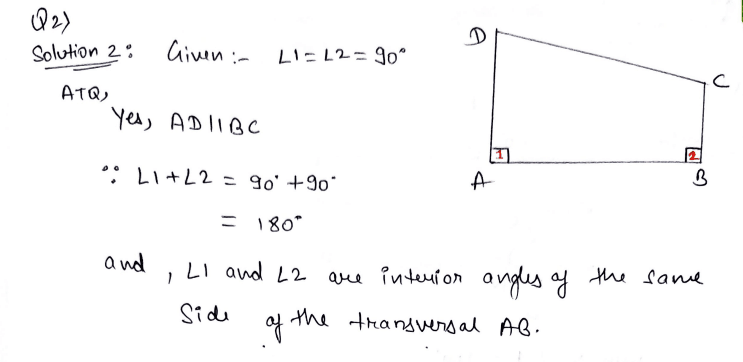 Q2)
Solution 2: Given :- ∠1 = ∠2 = 90°
ATQ,
Yes, AD || BC
∵ ∠1 + ∠2 = 90° + 90°
= 180°
and, ∠1 and ∠2 are interior angles of the same
Side of the transversal AB.
D
C
1
2
A
B